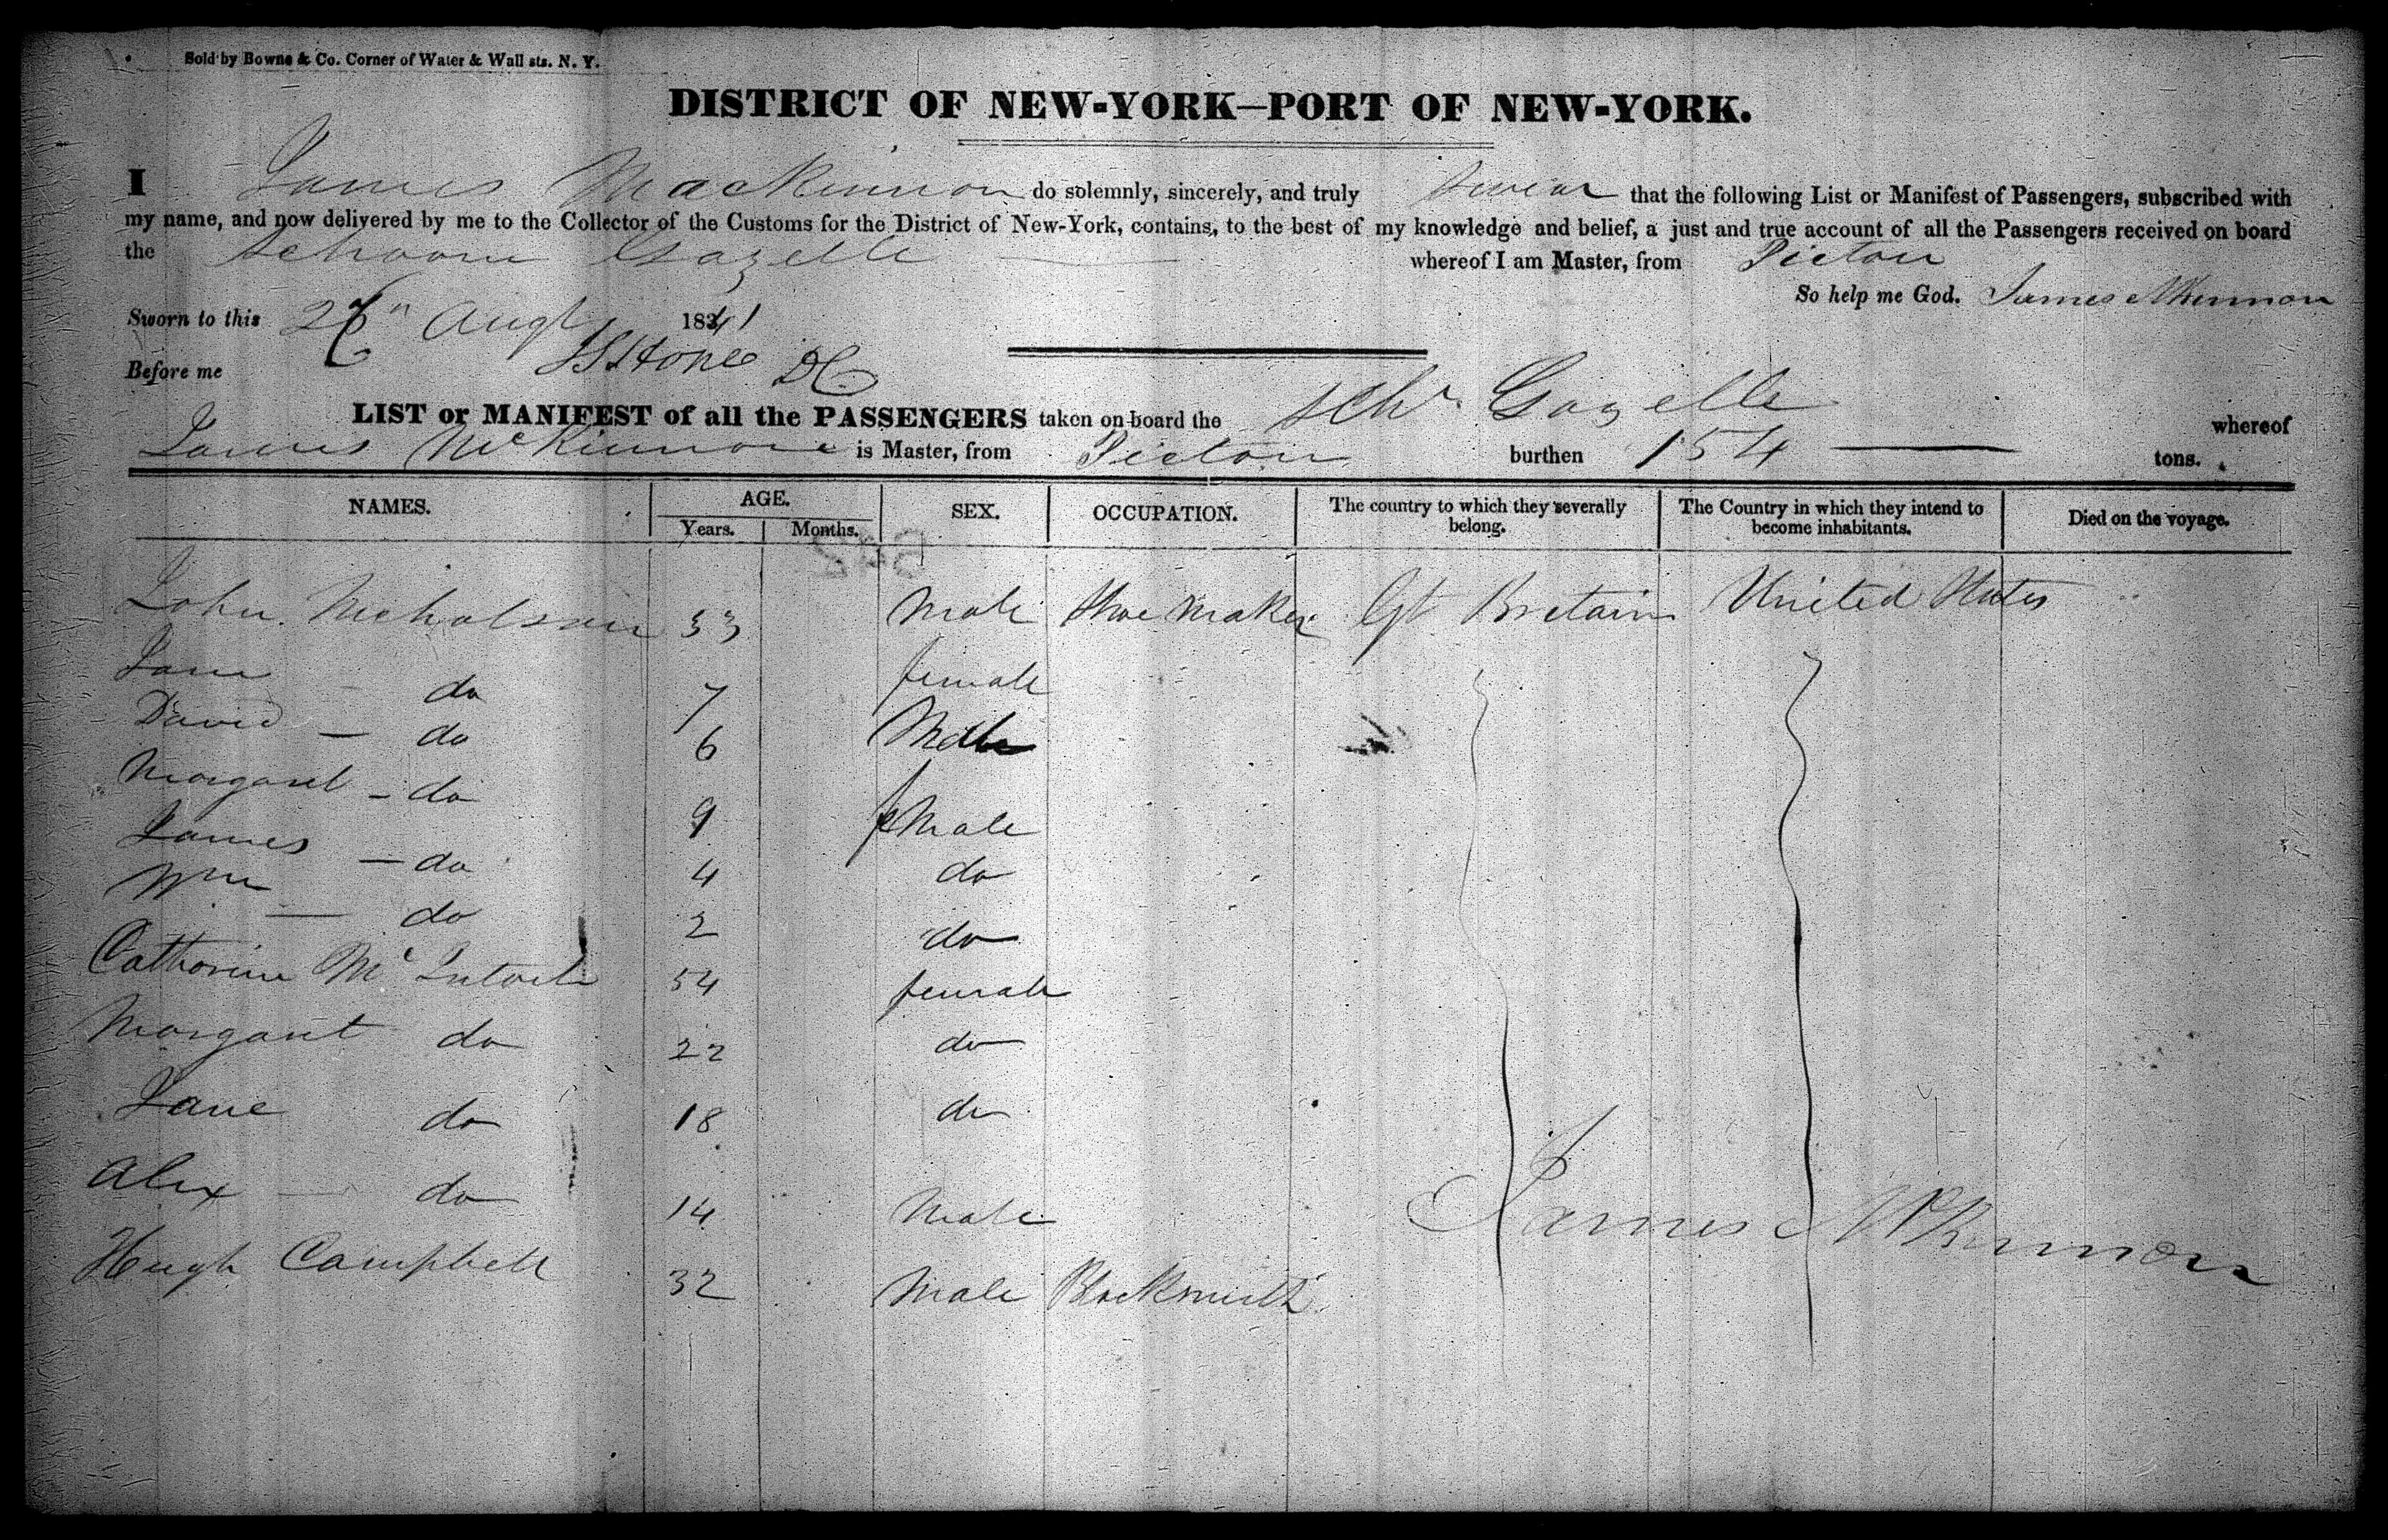 Sold by Bowne & Co. Corner of Water & Wall sts. N. Y.
DISTRICT OF NEW-YORK—PORT OF NEW-YORK.
I James MacKinnon do solemnly, sincerely, and truly swear that the following List or Manifest of Passengers, subscribed with
my name, and now delivered by me to the Collector of the Customs for the District of New-York, contains, to the best of my knowledge and belief, a just and true account of all the Passengers received on board
the Schoonr Gazelle whereof I am Master, from Pictou
So help me God. James McKinnon
Sworn to this Augt 1841
Before me
LIST or MANIFEST of all the PASSENGERS taken on board the Schr Gazelle whereof
James McKinnon is Master, from Pictou burthen 154 tons.
NAMES. AGE. Years. Months. SEX. OCCUPATION. The country to which they severally belong. The Country in which they intend to become inhabitants. Died on the voyage.
John Nicholson 33 Male Shoe Maker Gt Bretain United States
Jane do 7 female
David — do 6 Male
Margaret — do 9 feMale
James — do 4 do
Wm — do 2 do
Catherine Mc Intosh 54 female
Margaret do 22 do
Jane do 18 do
Alex — do 14 Male
Hugh Campbell 32 Male Blacksmith
James McKinnon